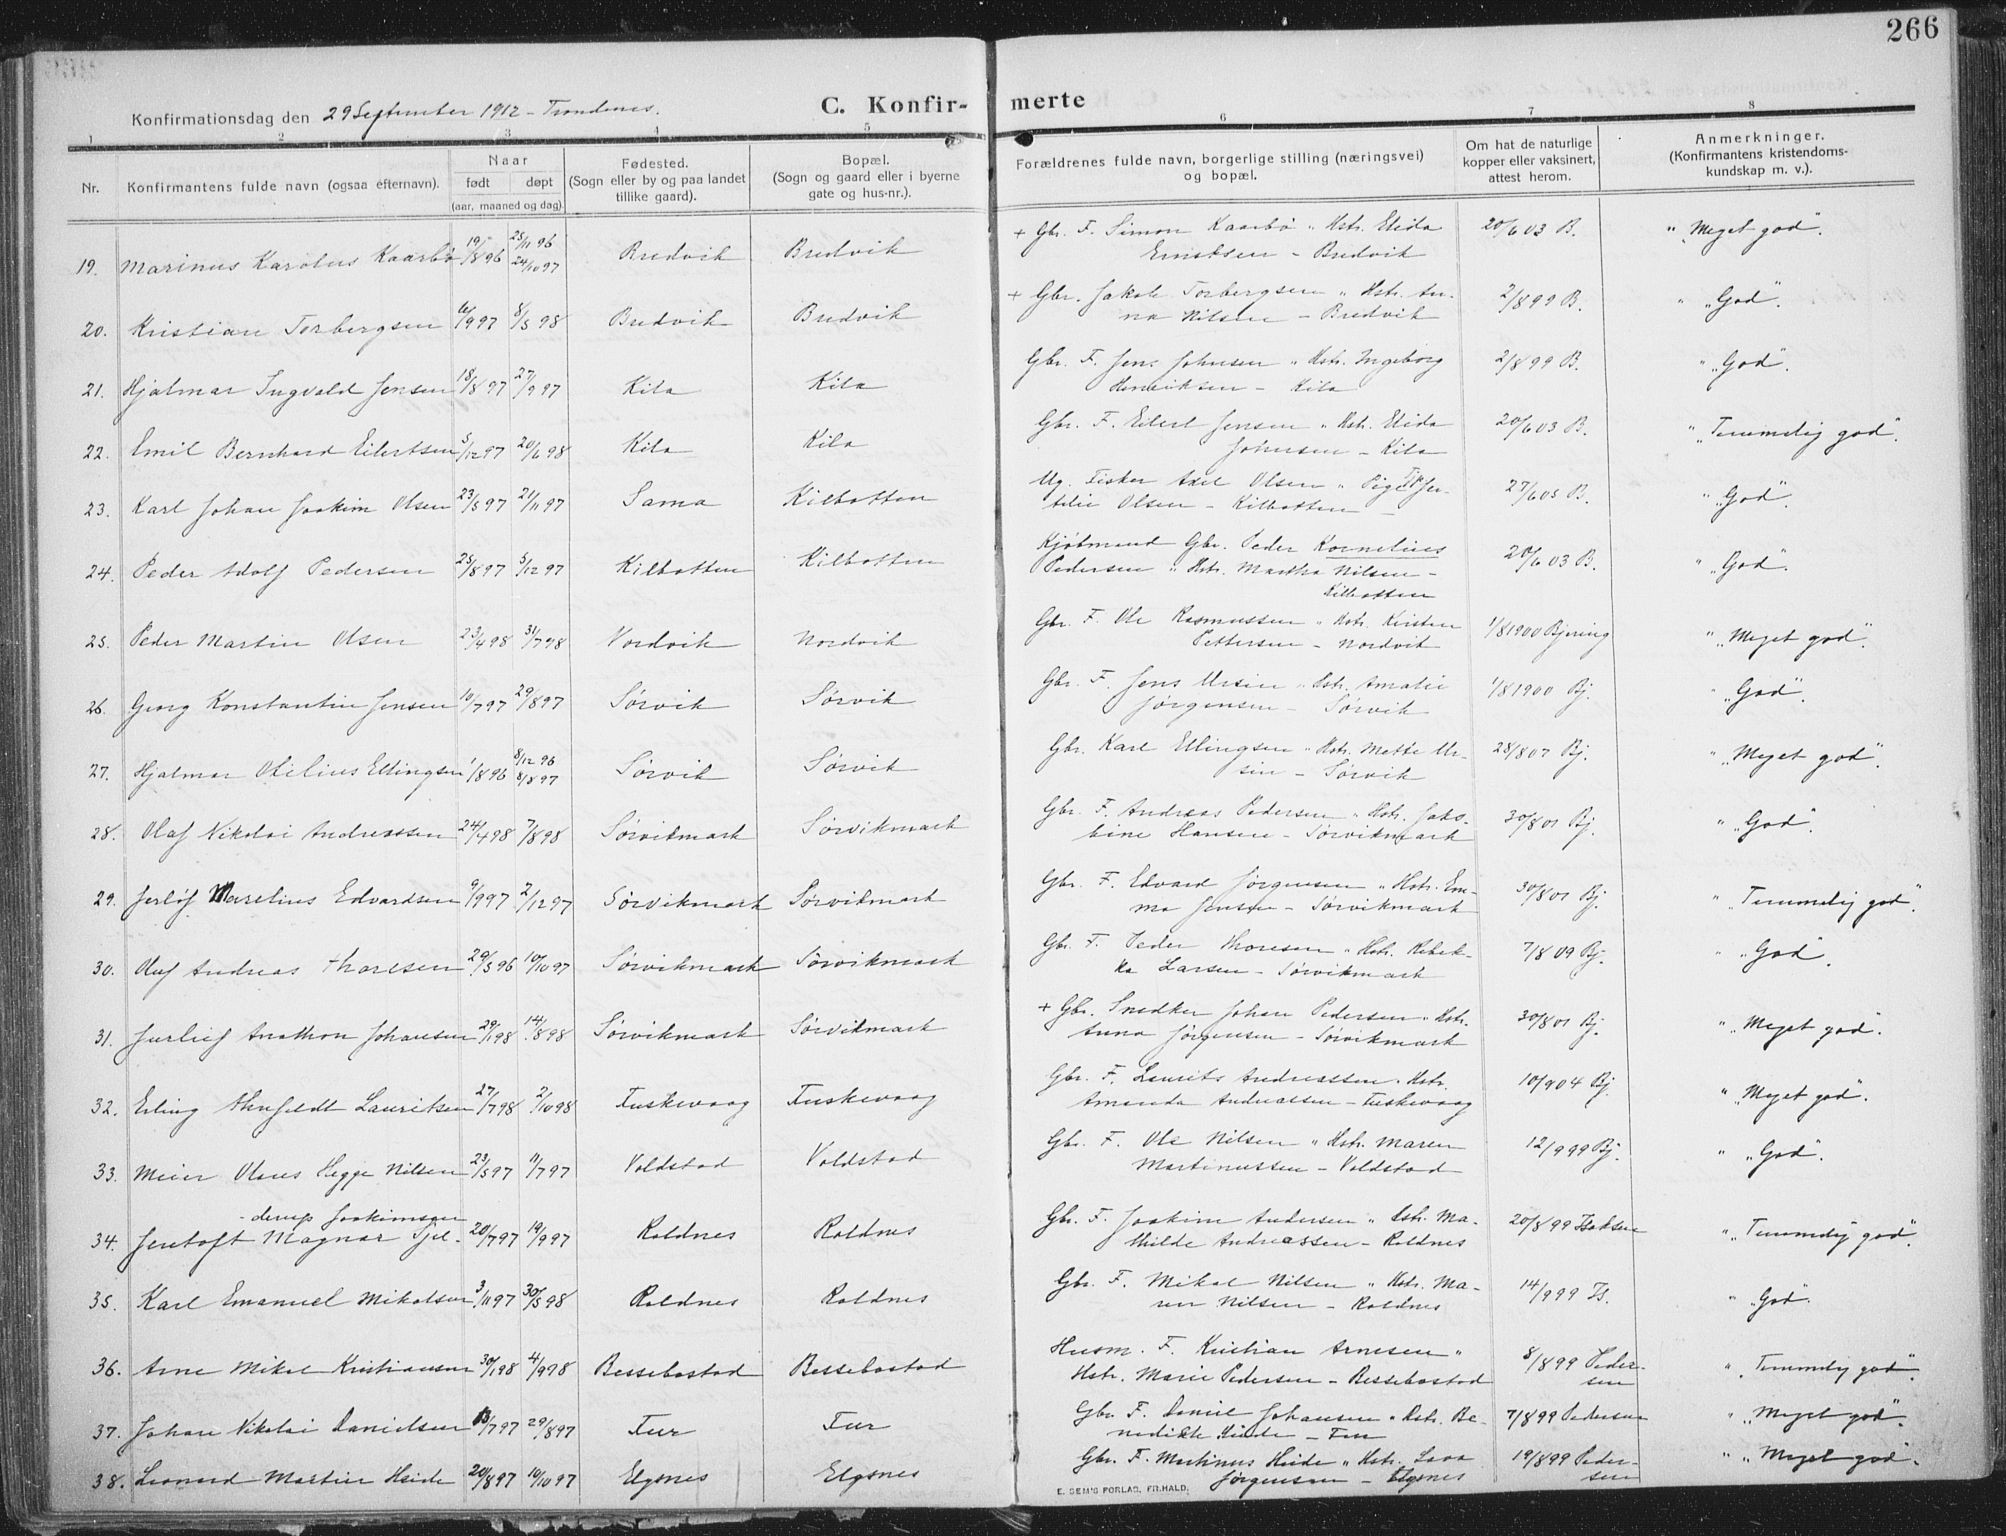 266
Konfirmationsdag den 29 September 1912 - Trondenes.
C. Konfirmerte
1 2 3 4 5 6 7 8
Nr. Konfirmantens fulde navn (ogsaa efternavn). Naar født døpt (aar, maaned og dag).
Fødested. (Sogn eller by og paa landet tillike gaard).
Bopæl. (Sogn og gaard eller i byerne gate og hus-nr.).
Forældrenes fulde navn, borgerlige stilling (næringsvei) og bopæl.
Om hat de naturlige kopper eller vaksinert, attest herom.
Anmerkninger. (Konfirmantens kristendoms-kundskap m. v.).
19. Marinus Karolus Kaarbø 19/8 96 25/11 96 24/10 97 Bredvik Bredvik + Gbr. F. Simon Kaarbø " Hstr. Elida Eriksen - Bredvik 20/6 03 B. " "Meget god".
20. Kristian Torbergsen 6/9 97 8/5 98 Bredvik Bredvik + Gbr. Jakob Torbergsen " Hstr. Anna Nilsen - Bredvik 2/8 99 B. " "God".
21. Hjalmar Ingvald Jensen 18/8 97 27/9 97 Kila Kila Gbr. F. Jens Johnsen " Hstr. Ingeborg Henriksen - Kila 2/8 99 B. " "God".
22. Emil Bernhard Eilertsen 5/12 97 20/6 98 Kila Kila Gbr. F. Eilert Jensen " Hstr. Elida Johnsen - Kila 20/6 03 B. " "Temmelig god".
23. Karl Johan Joakim Olsen 23/5 97 21/11 97 Sama Kilbotten Ug. Fisker Axel Olsen " Pige Olsen - Kilbotten 27/6 05 B. " "God".
24. Peder Adolf Pedersen 25/8 97 5/12 97 Kilbotten Kilbotten Kjøbmand Gbr. Peder Kornelius Pedersen " Hstr. Martha Nilsen - Kilbotten 20/6 03 B. " "God".
25. Peder Martin Olsen 23/4 98 31/7 98 Nordvik Nordvik Gbr. F. Ole Rasmussen " Hstr. Kirsten Pettersen - Nordvik 1/8 1900 Bjering " "Meget god".
26. Georg Konstantin Jensen 10/7 97 29/8 97 Sørvik Sørvik Gbr. F. Jens Ursin " Hstr. Amalie Jørgensen - Sørvik 1/8 1900 Bj. " "God".
27. Hjalmar Otilius Ellingsen 1/8 96 8/12 96 8/8 97 Sørvik Sørvik Gbr. Karl Ellingsen " Hstr. Mette Ursin - Sørvik 28/8 07 Bj. " "Meget god".
28. Olaf Nikolai Andreassen 24/4 98 7/8 98 Sørvikmark Sørvikmark Gbr. F. Andreas Pedersen " Hstr. Jakobine Hansen - Sørvikmark 30/8 01 Bj. " "God".
29. Marelius Edvardsen 9/9 97 2/12 97 Sørvikmark Sørvikmark Gbr. F. Edvard Jørgensen " Hstr. Emma Jensen - Sørvikmark 30/8 01 Bj. " "Temmelig god".
30. Olaf Andreas Thoresen 29/5 96 10/10 97 Sørvikmark Sørvikmark Gbr. F. Peder Thoresen " Hstr. Rebekka Larsen - Sørvikmark 7/8 09 Bj. " "God".
31. Anathon Johansen 29/1 98 14/8 98 Sørvikmark Sørvikmark + Gbr. Snedker Johan Pedersen " Hstr. Anna Jørgensen - Sørvikmark 30/8 01 Bj. " "Meget god".
32. Erling Lauritsen 27/7 98 2/10 98 Fuskevaag Fuskevaag Gbr. F. Laurits Andreassen " Hstr. Amanda Andreassen - Fuskevaag 10/9 04 Bj. " "Meget god".
33. Meier Olaus Hegge Nilsen 23/5 97 11/7 97 Voldstad Voldstad Gbr. F. Ole Nilsen " Hstr. Maren Martinussen - Voldstad 12/9 99 Bj. " "God".
34. Jentoft Magnar Gjelderup Joakimsen 20/7 97 19/9 97 Roldnes Roldnes Gbr. F. Joakim Andersen " Hstr. Mathilde Andreassen - Roldnes 20/8 99 Isaksen " "Temmelig god".
35. Karl Emanuel Mikalsen 3/11 97 30/5 98 Roldnes Roldnes Gbr. F. Mikal Nilsen " Hstr. Maren Nilsen - Roldnes 14/9 99 Is. " "God".
36. Arne Mikal Kristiansen 30/1 98 4/9 98 Bessebostad Bessebostad Husm. F. Kristian Arnesen " Hstr. Marie Pedersen - Bessebostad 8/8 99 Pedersen " "Temmelig god".
37. Johan Nikolai Danielsen 13/7 97 29/8 97 Fur Fur Gbr. F. Daniel Johansen " Hstr. Benedikte Hinde - Fur 7/8 99 Pedersen " "Meget god".
38. Leonard Martin Heide 20/8 97 10/10 97 Elgsnes Elgsnes Gbr. F. Martinus Heide " Hstr. Sara Jørgensen - Elgsnes 19/8 99 Pedersen " "Meget god".
E. SEM'S FORLAG, FR.HALD.